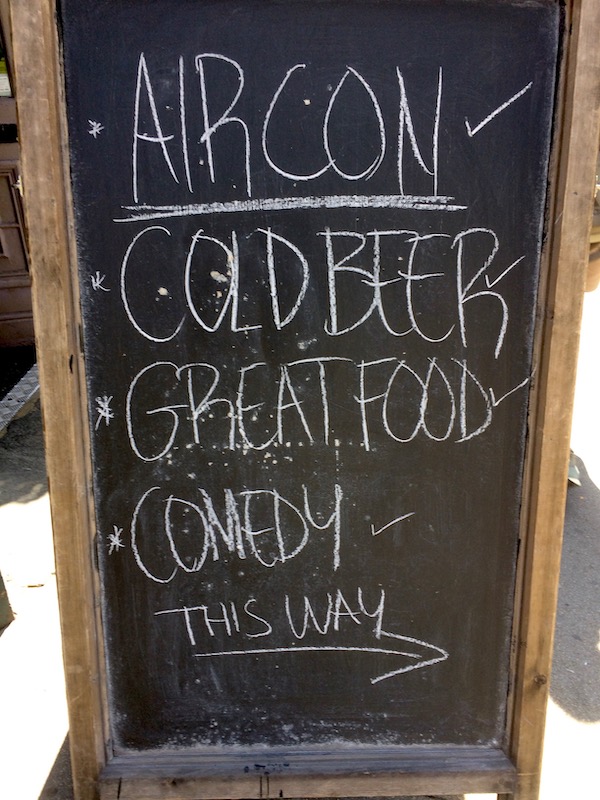 * AIRCON ✓
* COLD BEER ✓
* GREAT FOOD ✓
* COMEDY ✓
THIS WAY